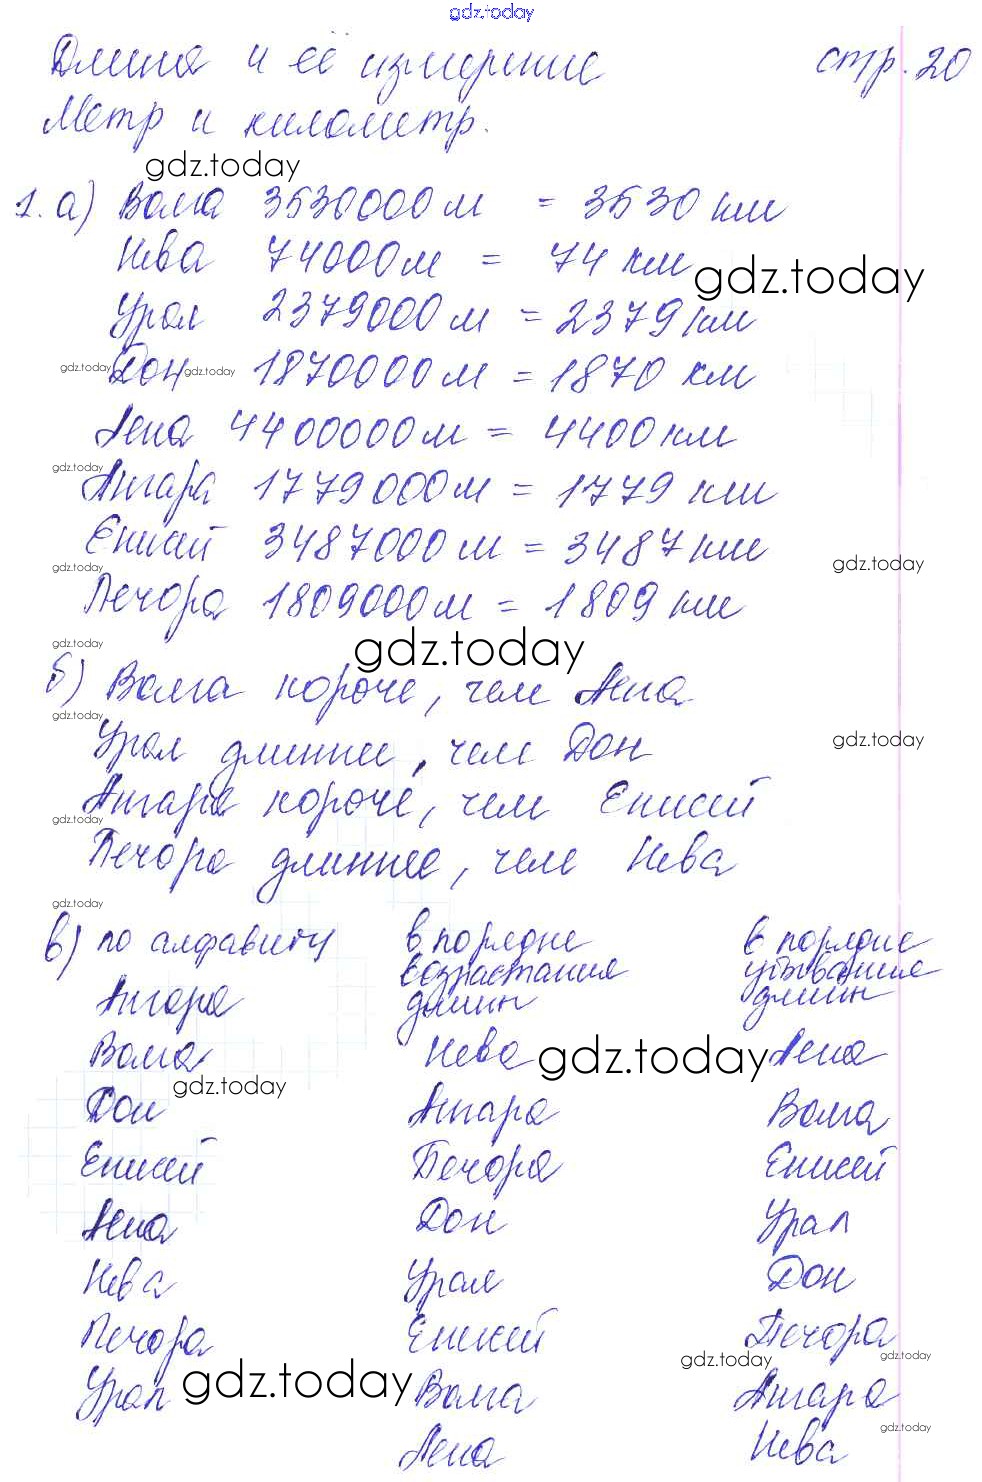 gdz.today
Длина и её измерение стр. 20
Метр и километр.
gdz.today
1. а) Волга 3530000 м = 3530 км
Нева 74000 м = 74 км
gdz.today
Урал 2379000 м = 2379 км
gdz.today Дон gdz.today 1870000 м = 1870 км
Лена 4400000 м = 4400 км
gdz.today
Ангара 1779000 м = 1779 км
Енисей 3487000 м = 3487 км
gdz.today gdz.today
Печора 1809000 м = 1809 км
gdz.today gdz.today
б) Волга короче, чем Лена
gdz.today
Урал длиннее, чем Дон
gdz.today
Ангара короче, чем Енисей
gdz.today
Печора длиннее, чем Нева
gdz.today
в) по алфавиту
Ангара
Волга
gdz.today
Дон
Енисей
Лена
Нева
Печора
Урал
gdz.today
в порядке
возрастания
длин
Нева
gdz.today
Ангара
Печора
Дон
Урал
Енисей
Волга
Лена
в порядке
убывания
длин
Лена
Волга
Енисей
Урал
Дон
Печора
gdz.today gdz.today
Ангара
gdz.today
Нева